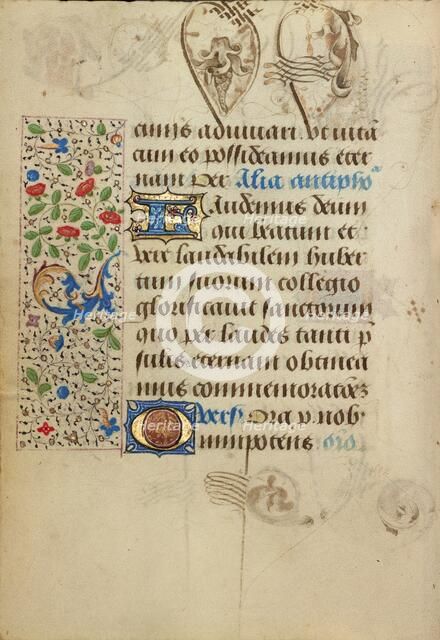 cuius adiuuari. vt uitā
cum eo possideamus eter
nam Per Alia antiphoᵃ
Laudemus deum
qui beatum et
vere laudabilem huber
tum suorum collegio
glorificauit sanctorum
quo per laudes tanti p
sulis eternam obtinea
mus commemoratōez
Vers Ora p nob
Omnipotens oro
heritage
Heritage
Images